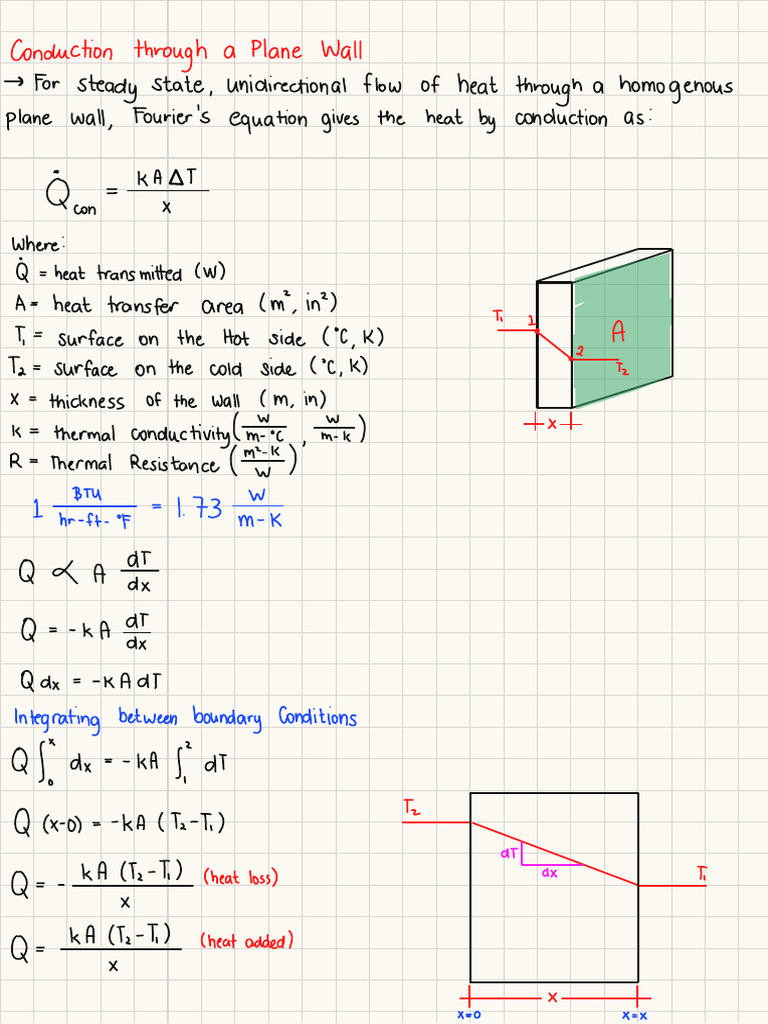 Conduction through a Plane Wall
→ For steady state, unidirectional flow of heat through a homogenous
plane wall, Fourier's equation gives the heat by conduction as:
Q̇con = kA∆T / x
Where:
Q̇ = heat transmitted (W)
A = heat transfer area (m², in²)
T₁ = surface on the Hot side (°C, K)
T₂ = surface on the cold side (°C, K)
x = thickness of the wall (m, in)
k = thermal conductivity (W / m-°C , W / m-k)
R = Thermal Resistance (m²-K / W)
T₁
1
A
2
T₂
x
1 BTU / hr-ft-°F = 1.73 W / m-K
Q ∝ A dT/dx
Q = -kA dT/dx
Qdx = -kAdT
Integrating between boundary Conditions
Q ∫₀ˣ dx = -kA ∫₁² dT
Q (x-0) = -kA (T₂-T₁)
Q = - kA (T₂-T₁) / x (heat loss)
Q = kA (T₂-T₁) / x (heat added)
T₂
dT
dx
T₁
x
x=0 x=x